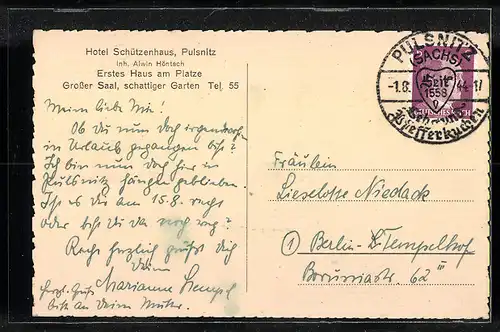 Hotel Schützenhaus, Pulsnitz
Inh. Alwin Höntsch
Erstes Haus am Platze
Großer Saal, schattiger Garten Tel. 55
Meine liebe Mie!
Ob Du nun doch irgendwo
in Urlaub gegangen bist?
Ich bin nun doch hier in
Pulsnitz hängen geblieben.
Ist es Dir am 15.8. recht
oder bist Du da noch weg?
Recht herzlich grüßt Dich
Deine
Marianne Stempel
herzl. Grüße
bitte an Deine Mutter.
PULSNITZ
(SACHS)
-1.8. 44-17
Seit
1558
b
Pfefferkuchen
Fräulein
Lieselotte Niedack
1 Berlin-Tempelhof
Borussiastr. 62 III